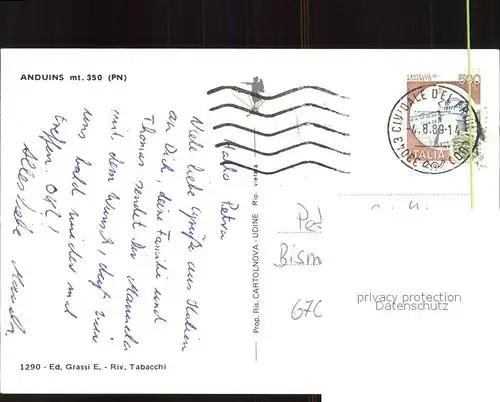 ANDUINS mt. 350 (PN)
Hallo Petra
Viele liebe Grüße aus Italien
an Dich, deine Familie und
Thomas sendet dir Manuela
mit dem Wunsch, daß wir
uns bald wieder mal
treffen. Ok!
Alles Liebe Manuela
1290 - Ed. Grassi E. - Riv. Tabacchi
Prop. Ris. CARTOLNOVA - UDINE Rip. vietata
500
ITALIA
33043 CIVIDALE DEL
4.8.89-14
Bism
670
privacy protection
Datenschutz